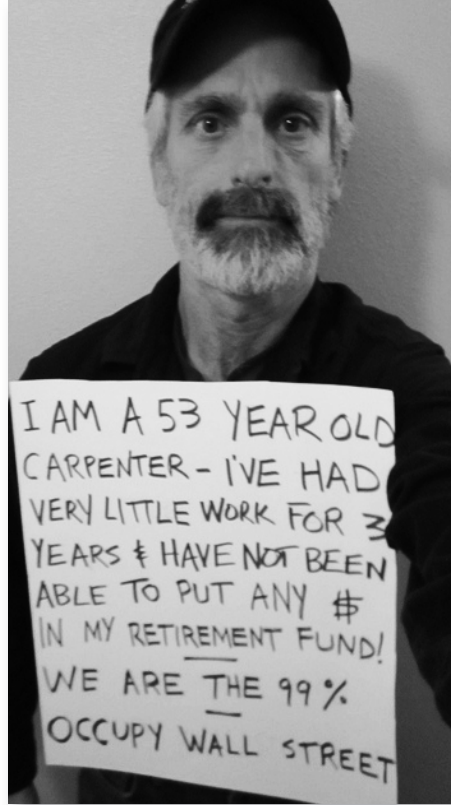 I AM A 53 YEAR OLD
CARPENTER - I'VE HAD
VERY LITTLE WORK FOR 3
YEARS & HAVE NOT BEEN
ABLE TO PUT ANY $
IN MY RETIREMENT FUND!
WE ARE THE 99%
OCCUPY WALL STREET